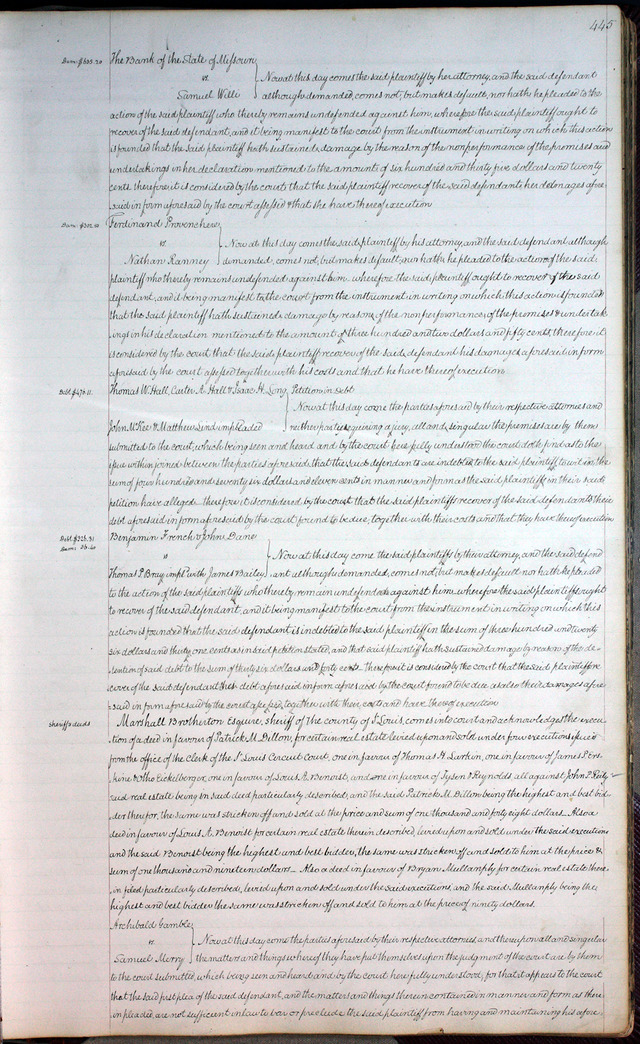 445
Dam: $635.20 The Bank of the State of Missouri
vs
Samuel Willi
Now at this day comes the said plaintiff by her attorney, and the said defendant
although demanded, comes not, but makes default, nor hath he pleaded to the
action of the said plaintiff who thereby remains undefended against him, wherefore the said plaintiff ought to
recover of the said defendant, and it being manifest to the court from the instrument in writing on which this action
is founded that the said plaintiff hath sustained damage by the reason of the nonperformance of the promises and
undertakings in her declaration mentioned to the amount of six hundred and thirty five dollars and twenty
cents therefore it is considered by the court that the said plaintiff recover of the said defendant her damages afore
said in form aforesaid by the court assessed & that she have thereof execution
Dam: $302.50 Ferdinand Provenchere
vs
Nathan Ranney
Now at this day comes the said plaintiff by his attorney, and the said defendant although
demanded, comes not, but makes default, nor hath he pleaded to the action of the said
plaintiff who thereby remains undefended against him wherefore the said plaintiff ought to recover of the said
defendant, and it being manifest to the court from the instrument in writing on which this action is founded
that the said plaintiff hath sustained damage by reason of the nonperformance of the promises & undertak
ings in his declaration mentioned to the amount of three hundred and two dollars and fifty cents, therefore it
is considered by the court that the said plaintiff recover of the said defendant his damages aforesaid in form
aforesaid by the court assessed together with his costs and that he have thereof execution.
Debt. $476.11 Thomas W. Hall, Carter A. Hall & Isaac H. Long Petition in Debt
Now at this day come the parties aforesaid by their respective attornies and
John McKee & Matthew Lind impleaded neither party requiring a jury, all and singular the premises are by them
submitted to the court, which being seen and heard and by the court here fully understood the court doth find as to the
issue within joined between the parties aforesaid, that the said defendants are indebted to the said plaintiff, to wit in the
sum of four hundred and seventy six dollars and eleven cents in manner and form as the said plaintiffs in their said
petition have alleged. therefore it is considered by the court that the said plaintiffs recover of the said defendants their
debt aforesaid in form aforesaid by the court found to be due, together with their costs and that they have thereof execution
Debt. $326.31 Benjamin French & John Dane
Dam: 36.40
vs
Now at this day come the said plaintiffs by their attorney, and the said defend
Thomas P. Bray impld with James Bailey ant although demanded, comes not, but makes default nor hath he pleaded
to the action of the said plaintiffs who thereby remain undefended against him, wherefore the said plaintiffs ought
to recover of the said defendant, and it being manifest to the court from the instrument in writing on which this
action is founded that the said defendant is indebted to the said plaintiff in the sum of three hundred and twenty
six dollars and thirty one cents as in said petition stated, and that said plaintiff hath sustained damage by reason of the de
tention of said debt to the sum of thirty six dollars and forty cents. Therefore it is considered by the court that the said plaintiffs re
cover of the said defendant their debt aforesaid in form aforesaid by the court found to be due as also their damages afore
said in form aforesaid by the court assessed, together with their costs and have thereof execution
Sheriffs deeds Marshall Brotherton Esquire, sheriff of the county of St Louis, comes into court and acknowledges the execu
tion of a deed in favour of Patrick M. Dillon, for certain real estate levied upon and sold under four executions issued
from the office of the Clerk of the St. Louis Circuit Court, one in favour of Thomas H. Larkin, one in favour of James P. Ers
kine & Otho Eichelberger, one in favour of Louis A. Benoist, and one in favour of Tyson & Reynolds all against John P. Reily
said real estate being in said deed particularly described, and the said Patrick M. Dillon being the highest and best bid
der therefor, the same was stricken off and sold at the price and sum of one thousand and forty eight dollars. Also a
deed in favour of Louis A. Benoist for certain real estate therein described, levied upon and sold under the said executions
and the said Benoist being the highest and best bidder, the same was stricken off and sold to him at the price &
sum of one thousand and nineteen dollars. Also a deed in favour of Bryan Mullanphy for certain real estate there
in deed particularly described, levied upon and sold under the said executions, and the said Mullanphy being the
highest and best bidder the same was stricken off and sold to him at the price of ninety dollars.
Archibald Gamble
vs
Samuel Merry
Now at this day come the parties aforesaid by their respective attornies, and thereupon all and singular
the matters and things whereof they have put themselves upon the judgment of the court are by them
to the court submitted, which being seen and heard and by the court here fully understood, for that it appears to the court
that the said first plea of the said defendant, and the matters and things therein contained in manner and form as there
in pleaded, are not sufficient in law to bar or preclude the said plaintiff from having and maintaining his afore